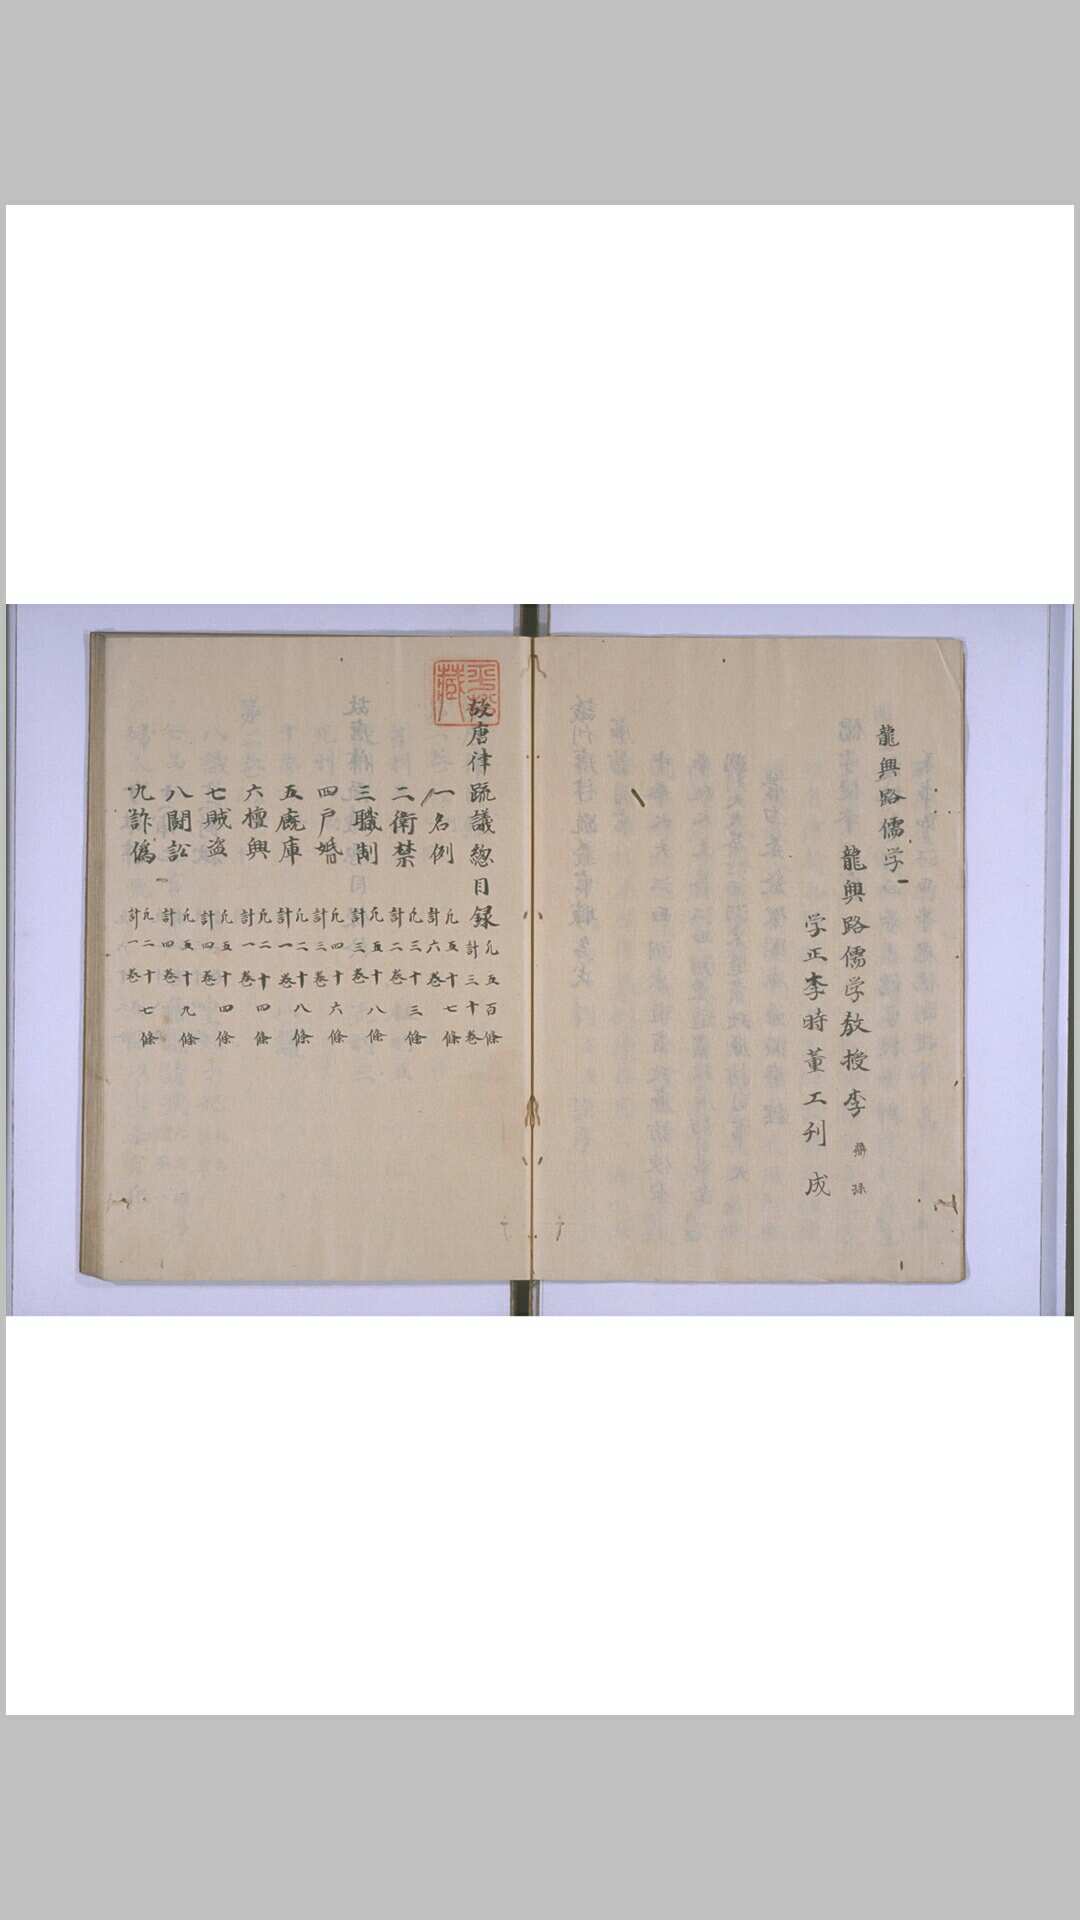 龍興路儒学
龍興路儒学教授李
学正李時董工刊成
故唐律疏議總目録 凢五百條 計三十卷
一名例 凢五十七條 計六卷
二衛禁 凢三十三條 計二卷
三職制 凢五十八條 計三卷
四戸婚 凢四十六條 計三卷
五廐庫 凢二十八條 計一卷
六檀興 凢二十四條 計一卷
七賊盗 凢五十四條 計四卷
八鬭訟 凢五十九條 計四卷
九詐偽 凢二十七條 計一卷